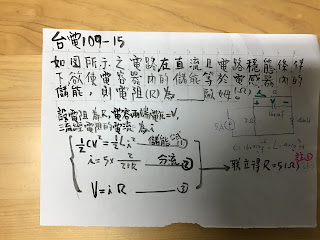 台電109-15
如圖所示之電路在直流且電路穩態條件
下欲使電容器內的儲能等於電感器內的
儲能，則電阻(R)為 歐姆(Ω)
設電阻為R，電容兩端電壓=V，
流經電阻的電流為i
½CV²=½Li² 儲能 ①
i=5× 2/(2+R) 分流 ②
V=iR ③
聯立得R=5(Ω)